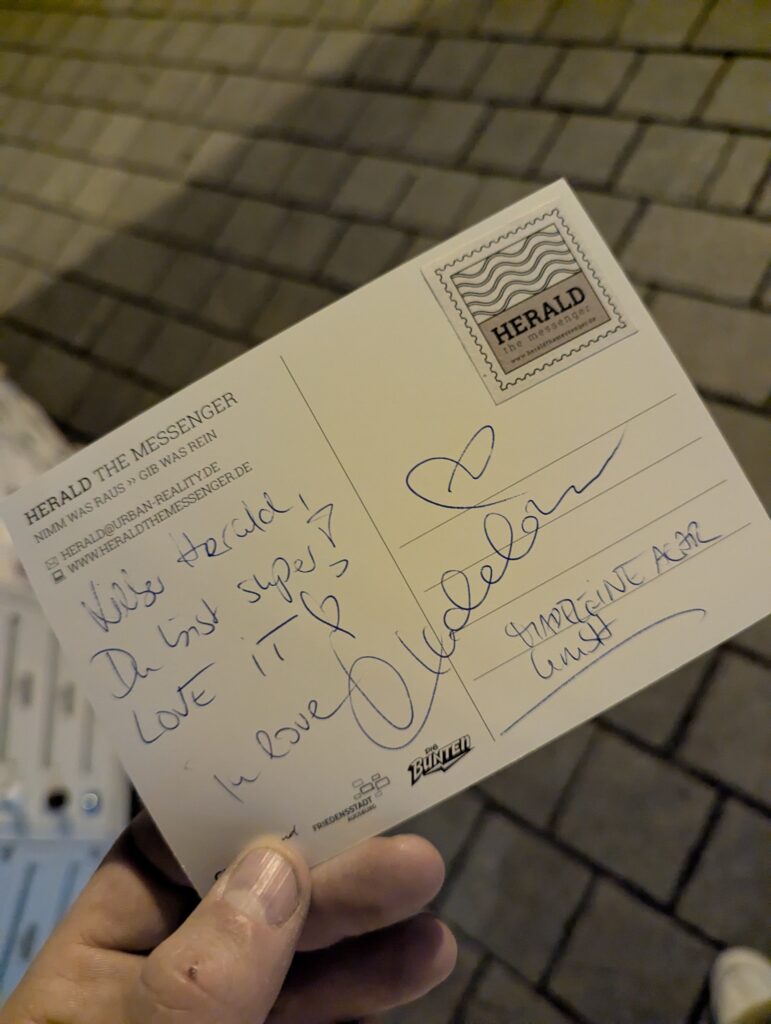 HERALD THE MESSENGER
NIMM WAS RAUS >> GIB WAS REIN
HERALD@URBAN-REALITY.DE
WWW.HERALDTHEMESSENGER.DE
Lieber Herald,
Du bist super!
LOVE IT
in love
HERALD
the messenger
www.heraldthemessenger.de
GmbH
FRIEDENSSTADT
AUGSBURG
DIE
BUNTEN